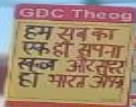 GDC Theog
हम सब का
एक ही सपना
स्वच्छ और सुन्दर
हो भारत अपना